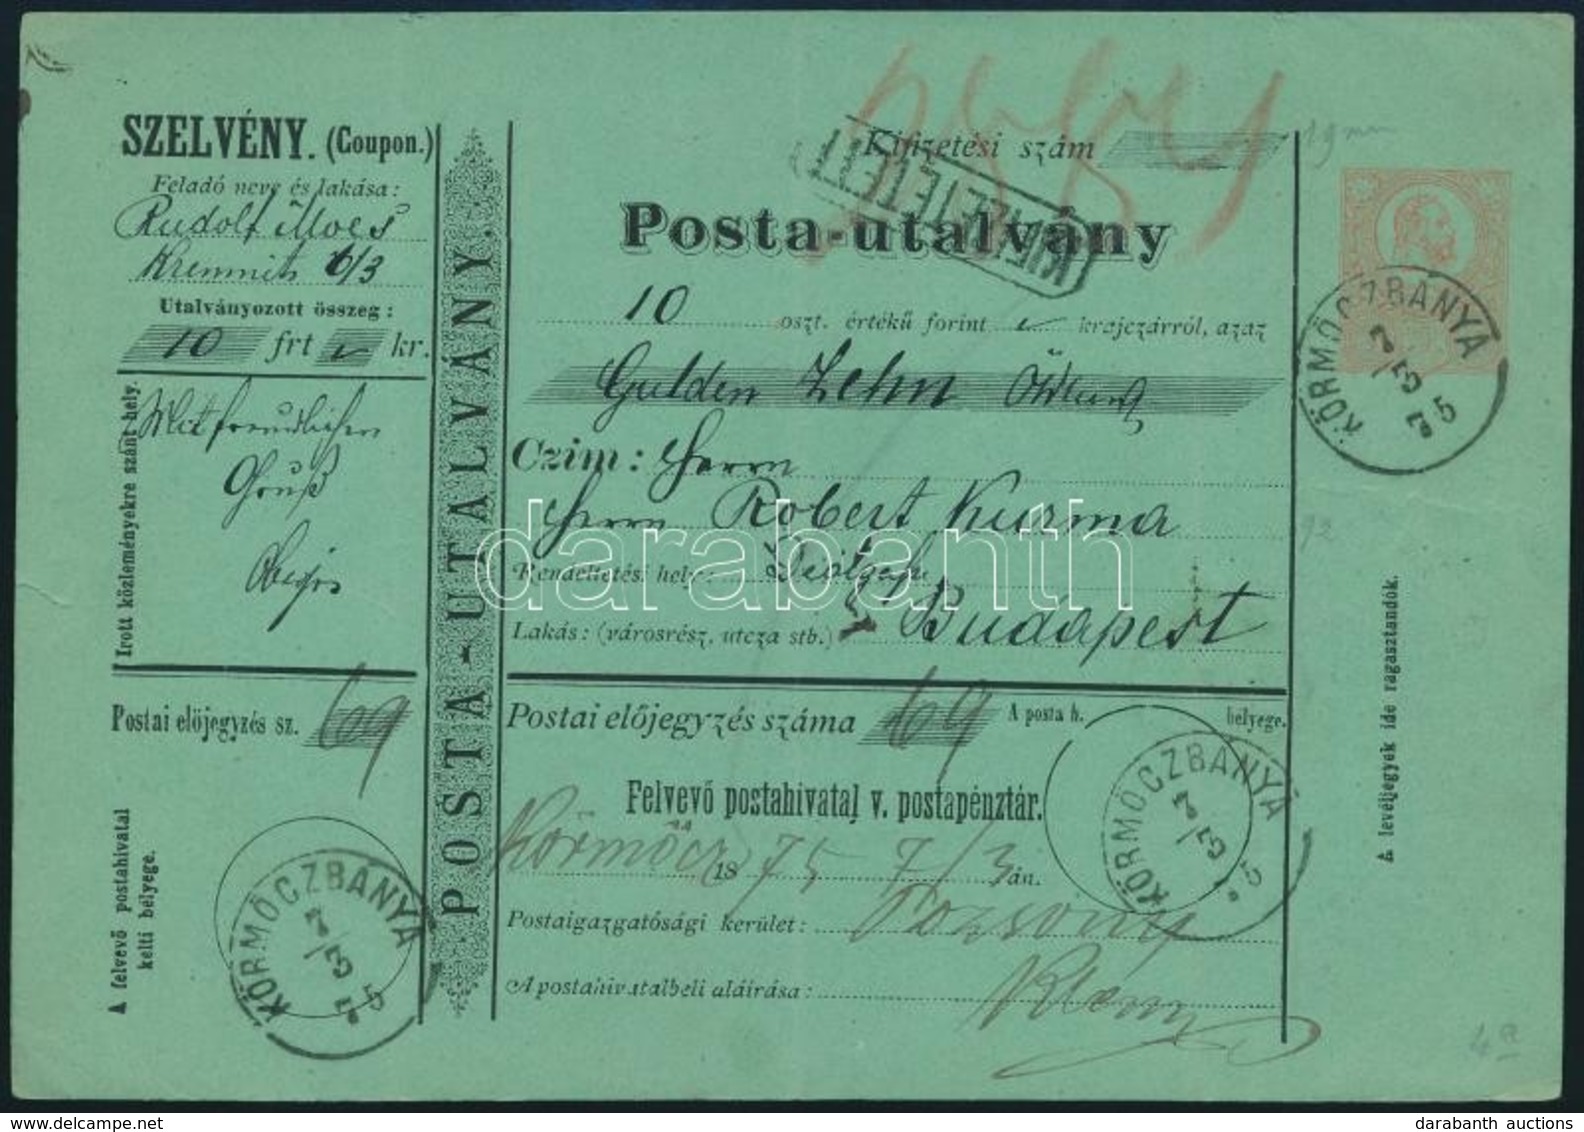 SZELVÉNY. (Coupon.)
Feladó neve és lakása:
Rudolf Moes
Kremnitz 6/3
Utalványozott összeg:
10 frt kr.
Irott közleményekre szánt hely.
Mit freundlichem
Gruß
Obiger
Postai előjegyzés sz. 69
A felvevő postahivatal
kelti bélyege.
KÖRMÖCZBÁNYA
7/3
75
POSTA-UTALVÁNY.
Kifizetési szám
KIFIZETTETETT
Posta-utalvány
10 oszt. értékű forint krajczárról, azaz
Gulden Zehn ÖWhrung
Czim: Herrn
Herrn Robert Kuzma
Rendeltetési hely:
Lakás: (városrész, utcza stb.) Budapest
Postai előjegyzés száma 69 A posta h. bélyege.
Felvevő postahivatal v. postapénztár.
Körmöcz 1875 7/3 án.
Postaigazgatósági kerület: Pozsony
A postahivatalbeli aláírása:
KÖRMÖCZBÁNYA
7/3
75
19 mm
KÖRMÖCZBÁNYA
7/3
75
92
A levéljegyek ide ragasztandók.
4a
darabanth
darabanth auctions
www.delcampe.net